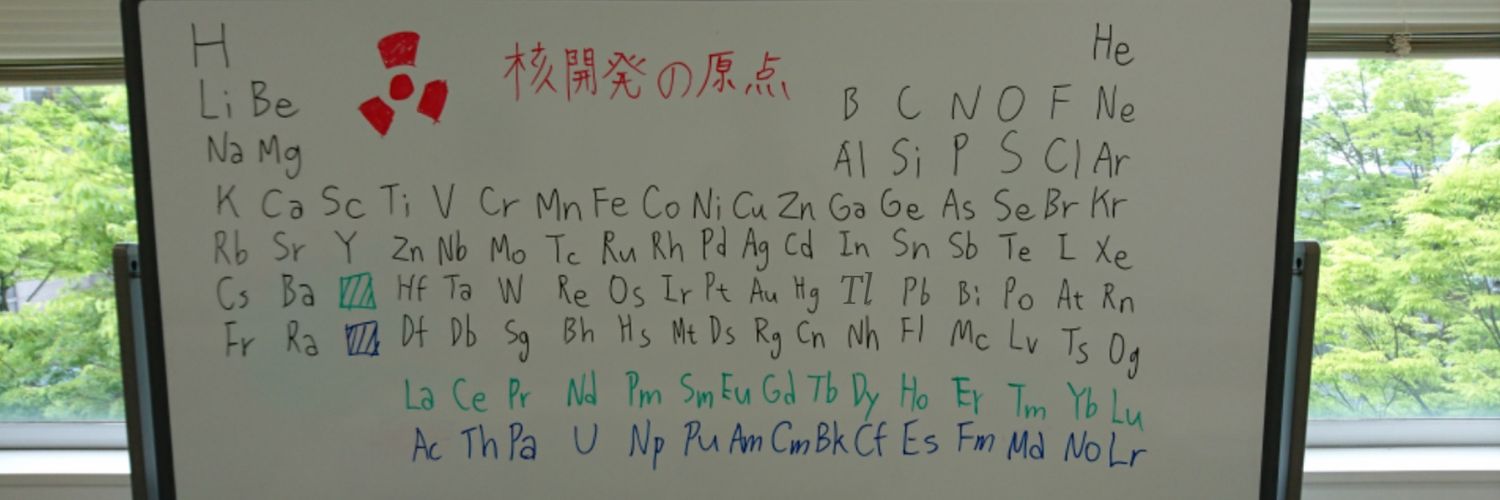 H 核開発の原点 He
Li Be B C N O F Ne
Na Mg Al Si P S Cl Ar
K Ca Sc Ti V Cr Mn Fe Co Ni Cu Zn Ga Ge As Se Br Kr
Rb Sr Y Zn Nb Mo Tc Ru Rh Pd Ag Cd In Sn Sb Te I Xe
Cs Ba Hf Ta W Re Os Ir Pt Au Hg Tl Pb Bi Po At Rn
Fr Ra Df Db Sg Bh Hs Mt Ds Rg Cn Nh Fl Mc Lv Ts Og
La Ce Pr Nd Pm Sm Eu Gd Tb Dy Ho Er Tm Yb Lu
Ac Th Pa U Np Pu Am Cm Bk Cf Es Fm Md No Lr